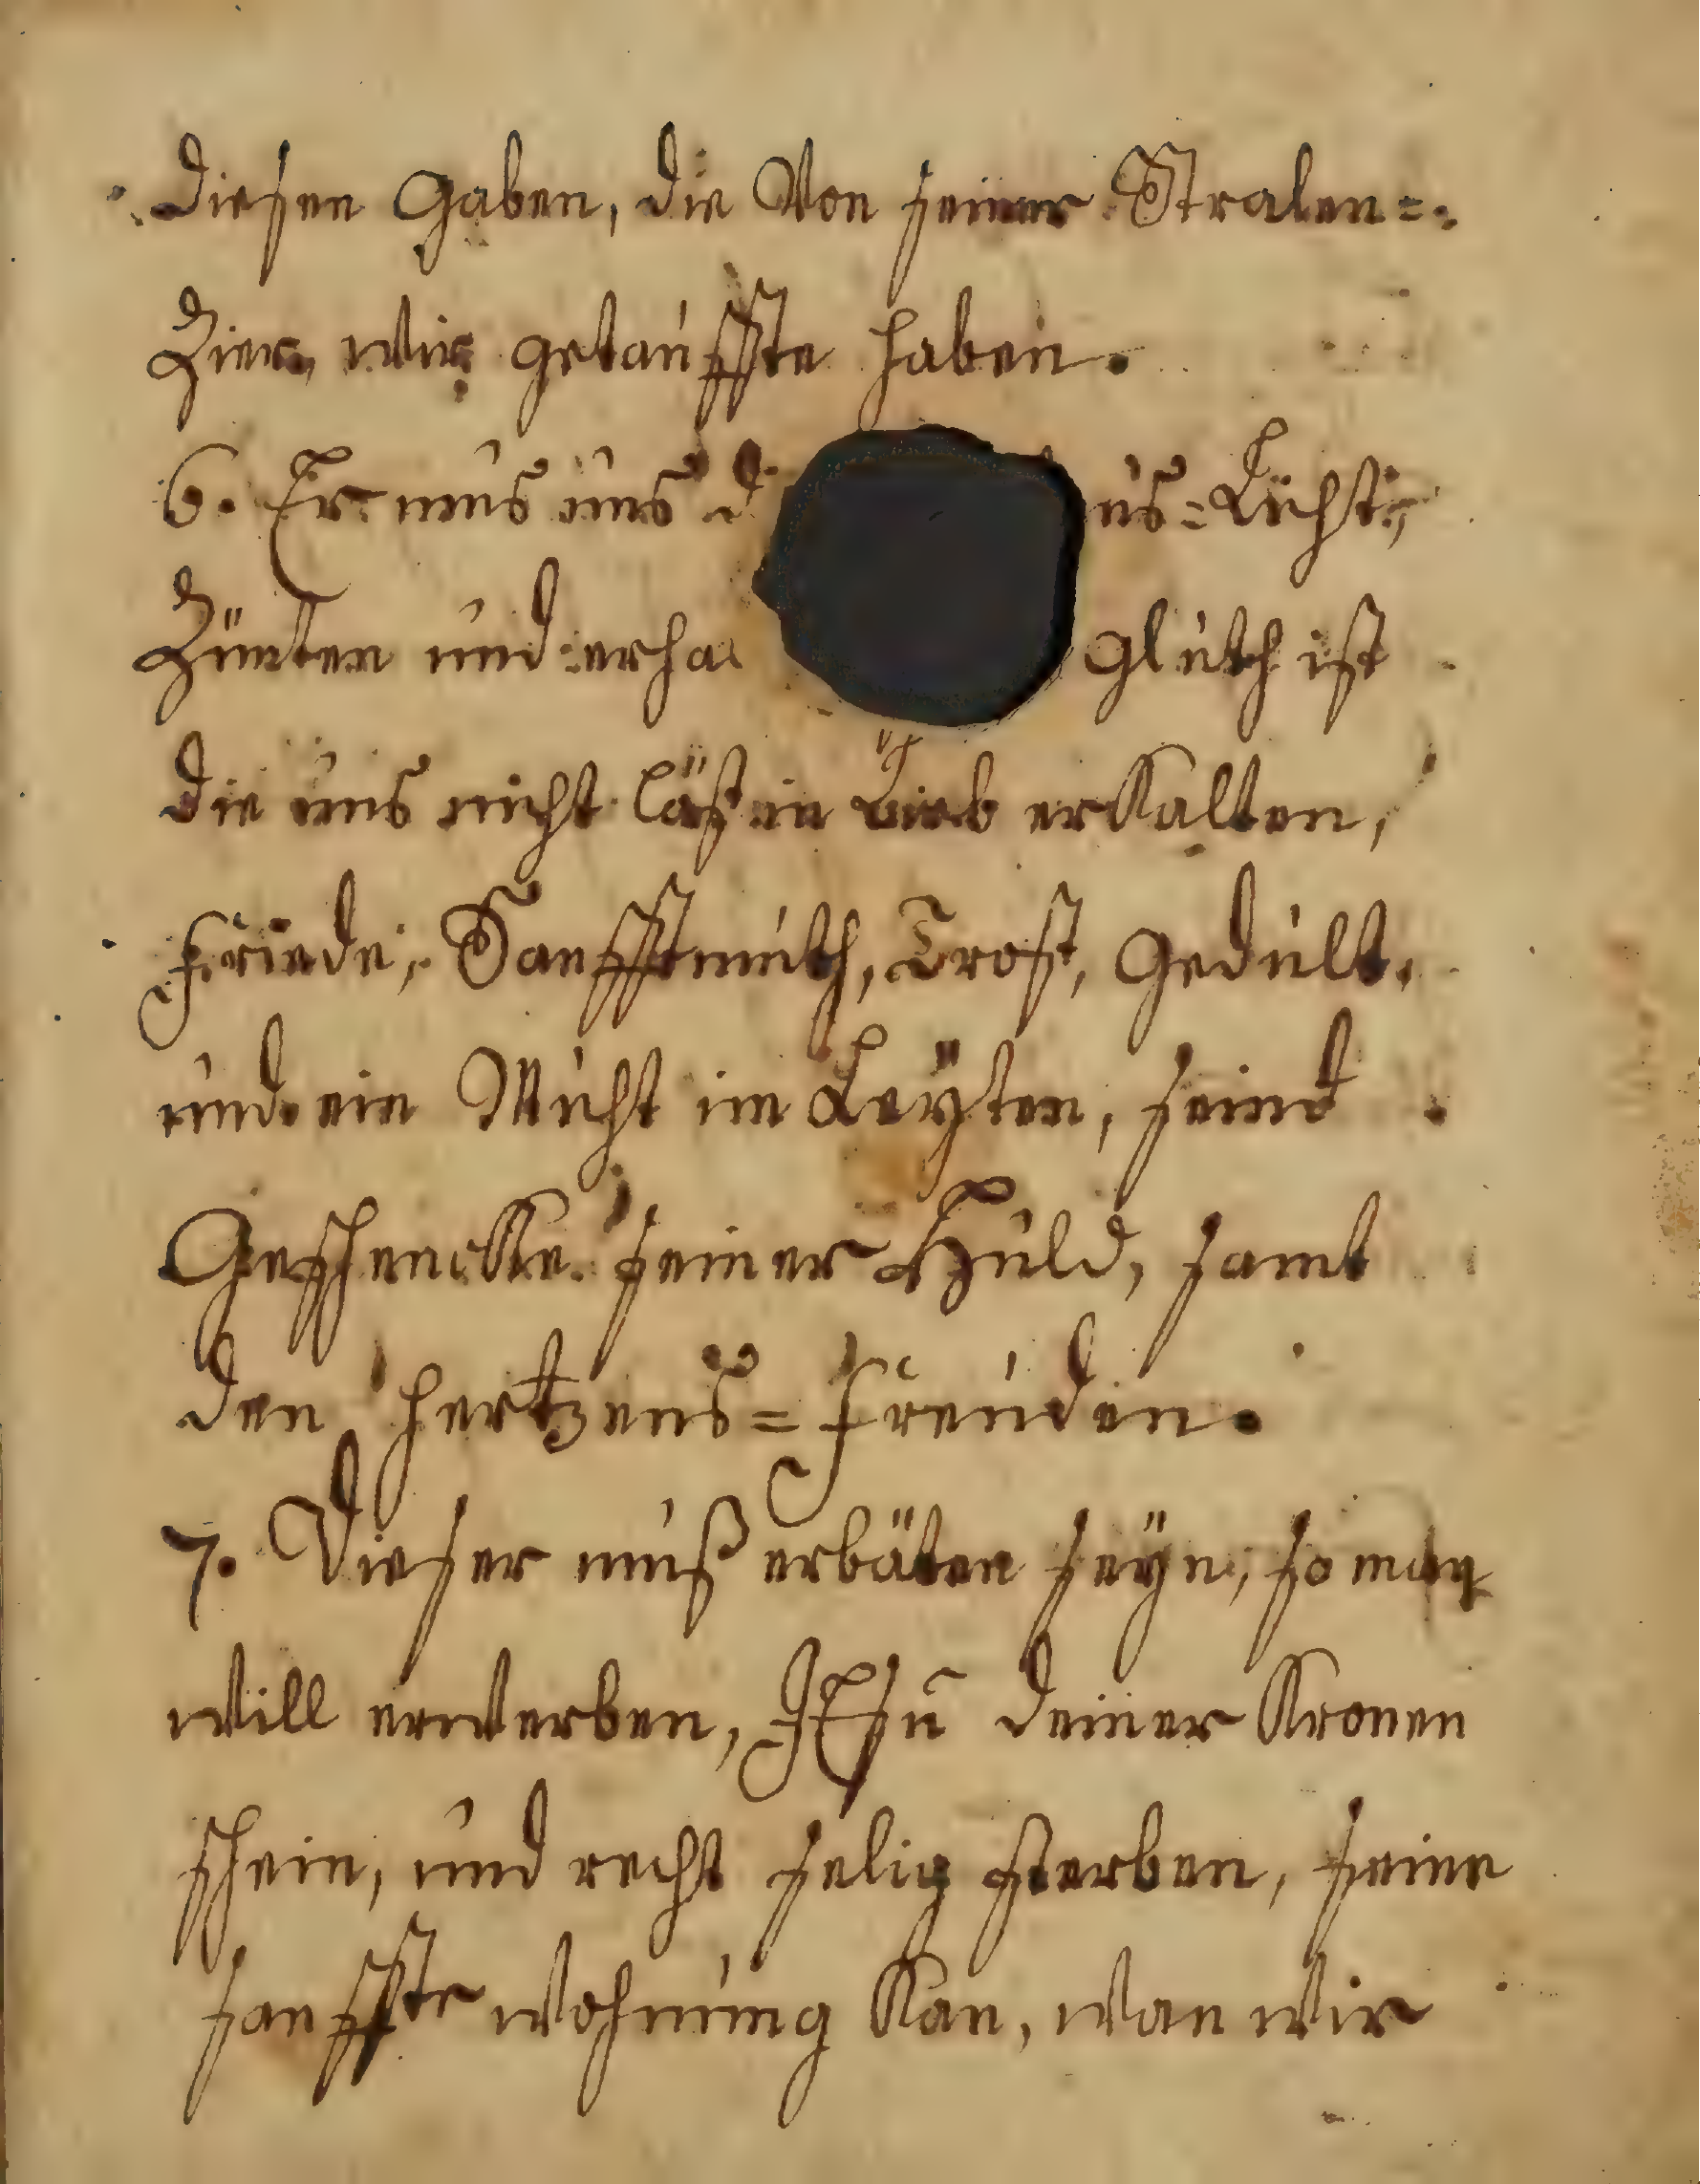 diesen Gaben, die Von seiner Stralen=
Zier, wir getauffte haben.
6. Er mus uns d us=Licht,
Zünten und erha gluth ist
die uns nicht läst in Lieb erkalten,
friede, Sanfftmuth, Trost, Gedult,
und ein Muht im Leÿten, seind
Geschencke seiner Huld, samt
den hertzens=freuden.
7. Dieser muß erbäten seÿn, so man
will erwerben, JEsu deiner Kronen
schein, und recht selig sterben, seine
sanffte wohnung Kan, wan wir